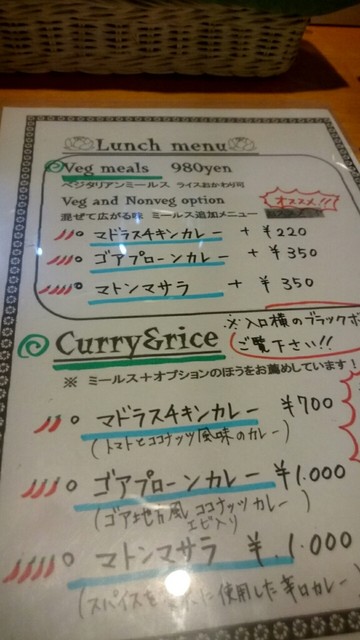 Lunch menu
Veg meals 980yen
ベジタリアンミールス ライスおかわり可
Veg and Nonveg option
オススメ!!
混ぜて広がる味 ミールス追加メニュー
マドラスチキンカレー + ¥220
ゴアプローンカレー + ¥350
マトンマサラ + ¥350
※入口横のブラックボ
Curry&rice
ご覧下さい!!
※ ミールス+オプションのほうをお薦めしています!
マドラスチキンカレー ¥700
(トマトとココナッツ風味のカレー)
ゴアプローンカレー ¥1.000
(ゴア地方風 ココナッツカレー)
エビ入り
マトンマサラ ¥.1.000
(スパイスを に使用した辛口カレー